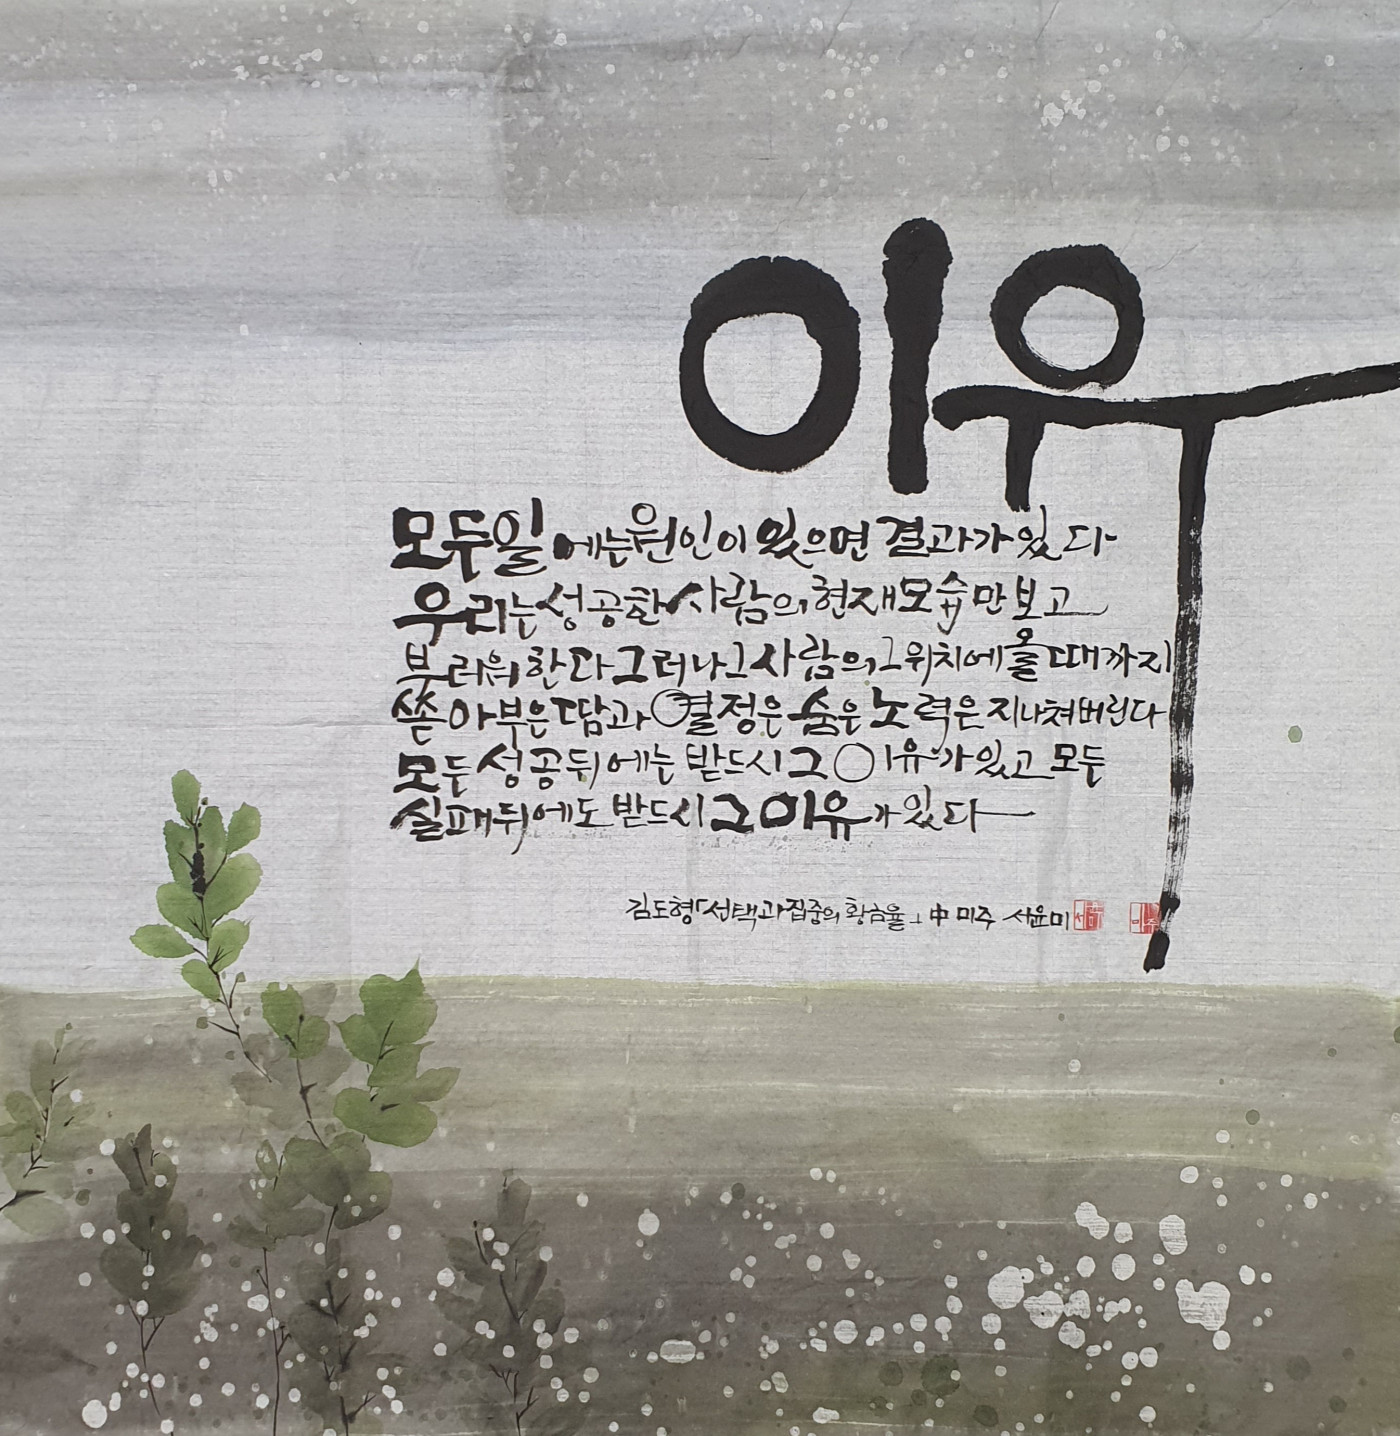 이유
모두일에는 원인이 있으면 결과가 있다
우리는 성공한 사람의 현재 모습만 보고
부러워 한다 그러나 그 사람의 그 위치에 올 때까지
쏟아부은 땀과 열정은 숨은 노력은 지나쳐버린다
모든 성공 뒤에는 반드시 그 이유가 있고 모든
실패 뒤에도 반드시 그 이유가 있다
김도형「선택과 집중의 황금율」中 미주 서윤미